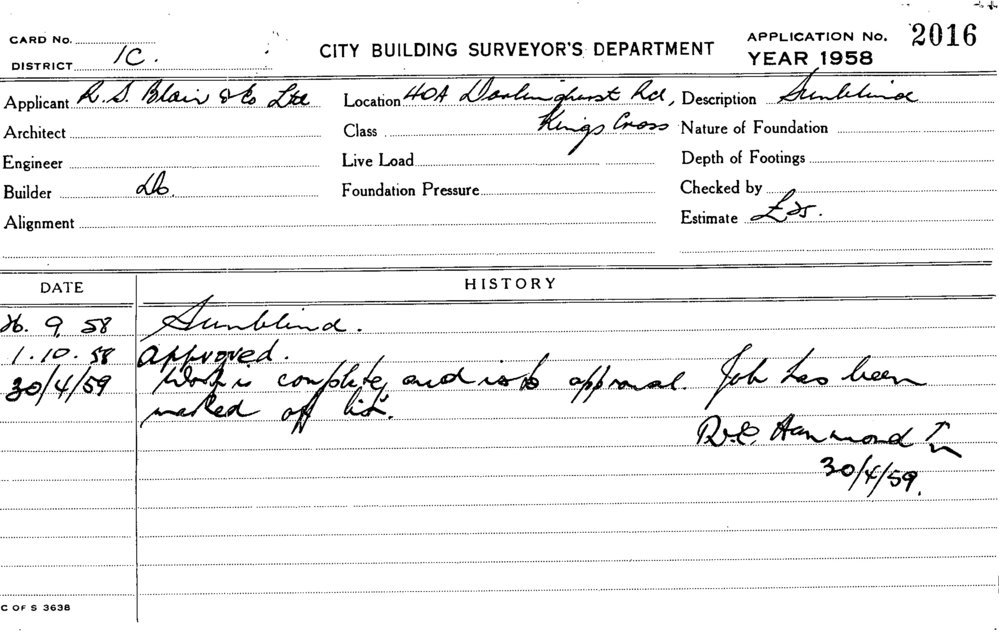 CARD No.
CITY BUILDING SURVEYOR'S DEPARTMENT
APPLICATION No. 2016
DISTRICT 1C.
YEAR 1958
Applicant R. S. Blair & Co Ltd
Location 40A Darlinghurst Rd,
Description Sunblind
Architect
Class Kings Cross
Nature of Foundation
Engineer
Live Load
Depth of Footings
Builder Do.
Foundation Pressure
Checked by
Alignment
Estimate £25.
DATE HISTORY
26. 9. 58 Sunblind.
1. 10. 58 Approved.
30/4/59 Work is complete, and is to approval. Job has been
marked off list.
Hammond
30/4/59.
C OF S 3638